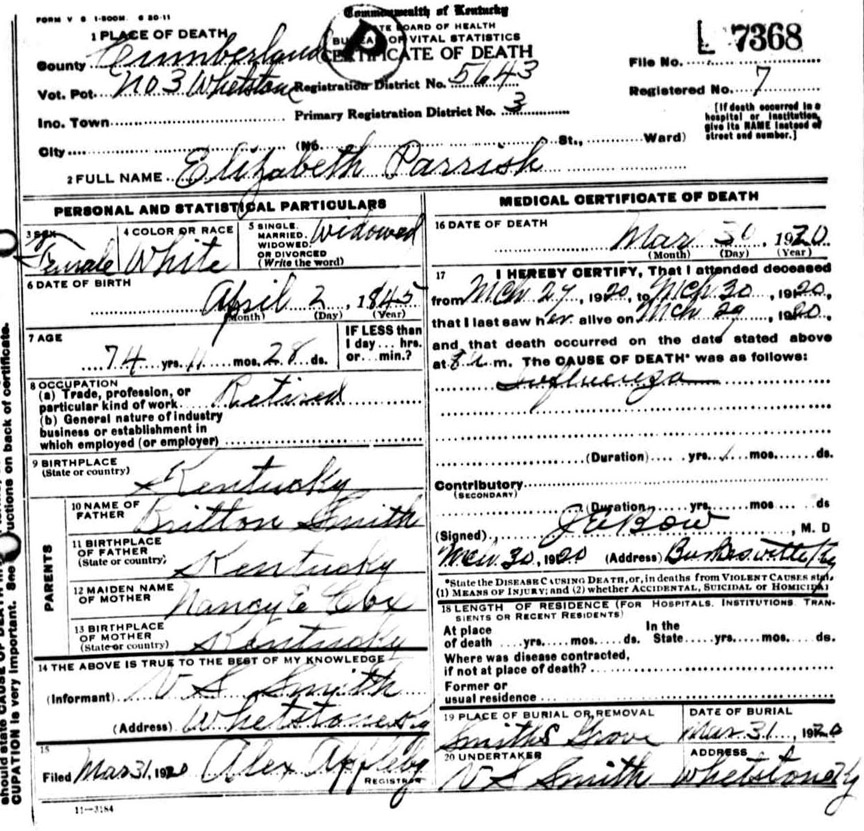 FORM V S 1-500M. 6 20-11
Commonwealth of Kentucky
STATE BOARD OF HEALTH
BUREAU OF VITAL STATISTICS
CERTIFICATE OF DEATH
P
L 7368
File No.
Registered No. 7
[If death occurred in a hospital or institution, give its NAME instead of street and number.]
1 PLACE OF DEATH
County Cumberland
Vot. Pct. No 3 Whetstone Registration District No. 5643
Inc. Town Primary Registration District No. 3
City (No. St., Ward)
2 FULL NAME Elizabeth Parrish
PERSONAL AND STATISTICAL PARTICULARS
3 SEX Female
4 COLOR OR RACE White
5 SINGLE, MARRIED, WIDOWED, OR DIVORCED (Write the word) Widowed
6 DATE OF BIRTH
April 2, 1845
(Month) (Day) (Year)
7 AGE
74 yrs. 11 mos. 28 ds.
IF LESS than 1 day... hrs. or... min.?
8 OCCUPATION
(a) Trade, profession, or particular kind of work Retired
(b) General nature of industry business or establishment in which employed (or employer)
9 BIRTHPLACE (State or country) Kentucky
PARENTS
10 NAME OF FATHER Britton Smith
11 BIRTHPLACE OF FATHER (State or country) Kentucky
12 MAIDEN NAME OF MOTHER Nancy E Cox
13 BIRTHPLACE OF MOTHER (State or country) Kentucky
14 THE ABOVE IS TRUE TO THE BEST OF MY KNOWLEDGE
(Informant) V S Smith
(Address) Whetstone Ky
15
Filed Mar 31, 1920 Alex Appleby
REGISTRAR
11-3184
MEDICAL CERTIFICATE OF DEATH
16 DATE OF DEATH
Mar 31, 1920
(Month) (Day) (Year)
17 I HEREBY CERTIFY, That I attended deceased
from Mch 27, 1920, to Mch 30, 1920,
that I last saw her alive on Mch 29, 1920,
and that death occurred on the date stated above
at m. The CAUSE OF DEATH* was as follows:
Influenza
(Duration) yrs. mos. ds.
Contributory
(SECONDARY)
(Duration) yrs. mos ds
(Signed) , M. D
Mch 30, 1920 (Address) Burkesville Ky
*State the DISEASE CAUSING DEATH, or, in deaths from VIOLENT CAUSES state
(1) MEANS OF INJURY; and (2) whether ACCIDENTAL, SUICIDAL or HOMICIDAL
18 LENGTH OF RESIDENCE (FOR HOSPITALS, INSTITUTIONS, TRANSIENTS OR RECENT RESIDENTS)
At place of death yrs. mos. ds. In the State yrs. mos. ds.
Where was disease contracted,
if not at place of death?
Former or
usual residence
19 PLACE OF BURIAL OR REMOVAL Smiths Grove
DATE OF BURIAL Mar 31, 1920
20 UNDERTAKER V S Smith
ADDRESS Whetstone Ky
should state CAUSE OF DEATH
CUPATION is very important. See uctions on back of certificate.